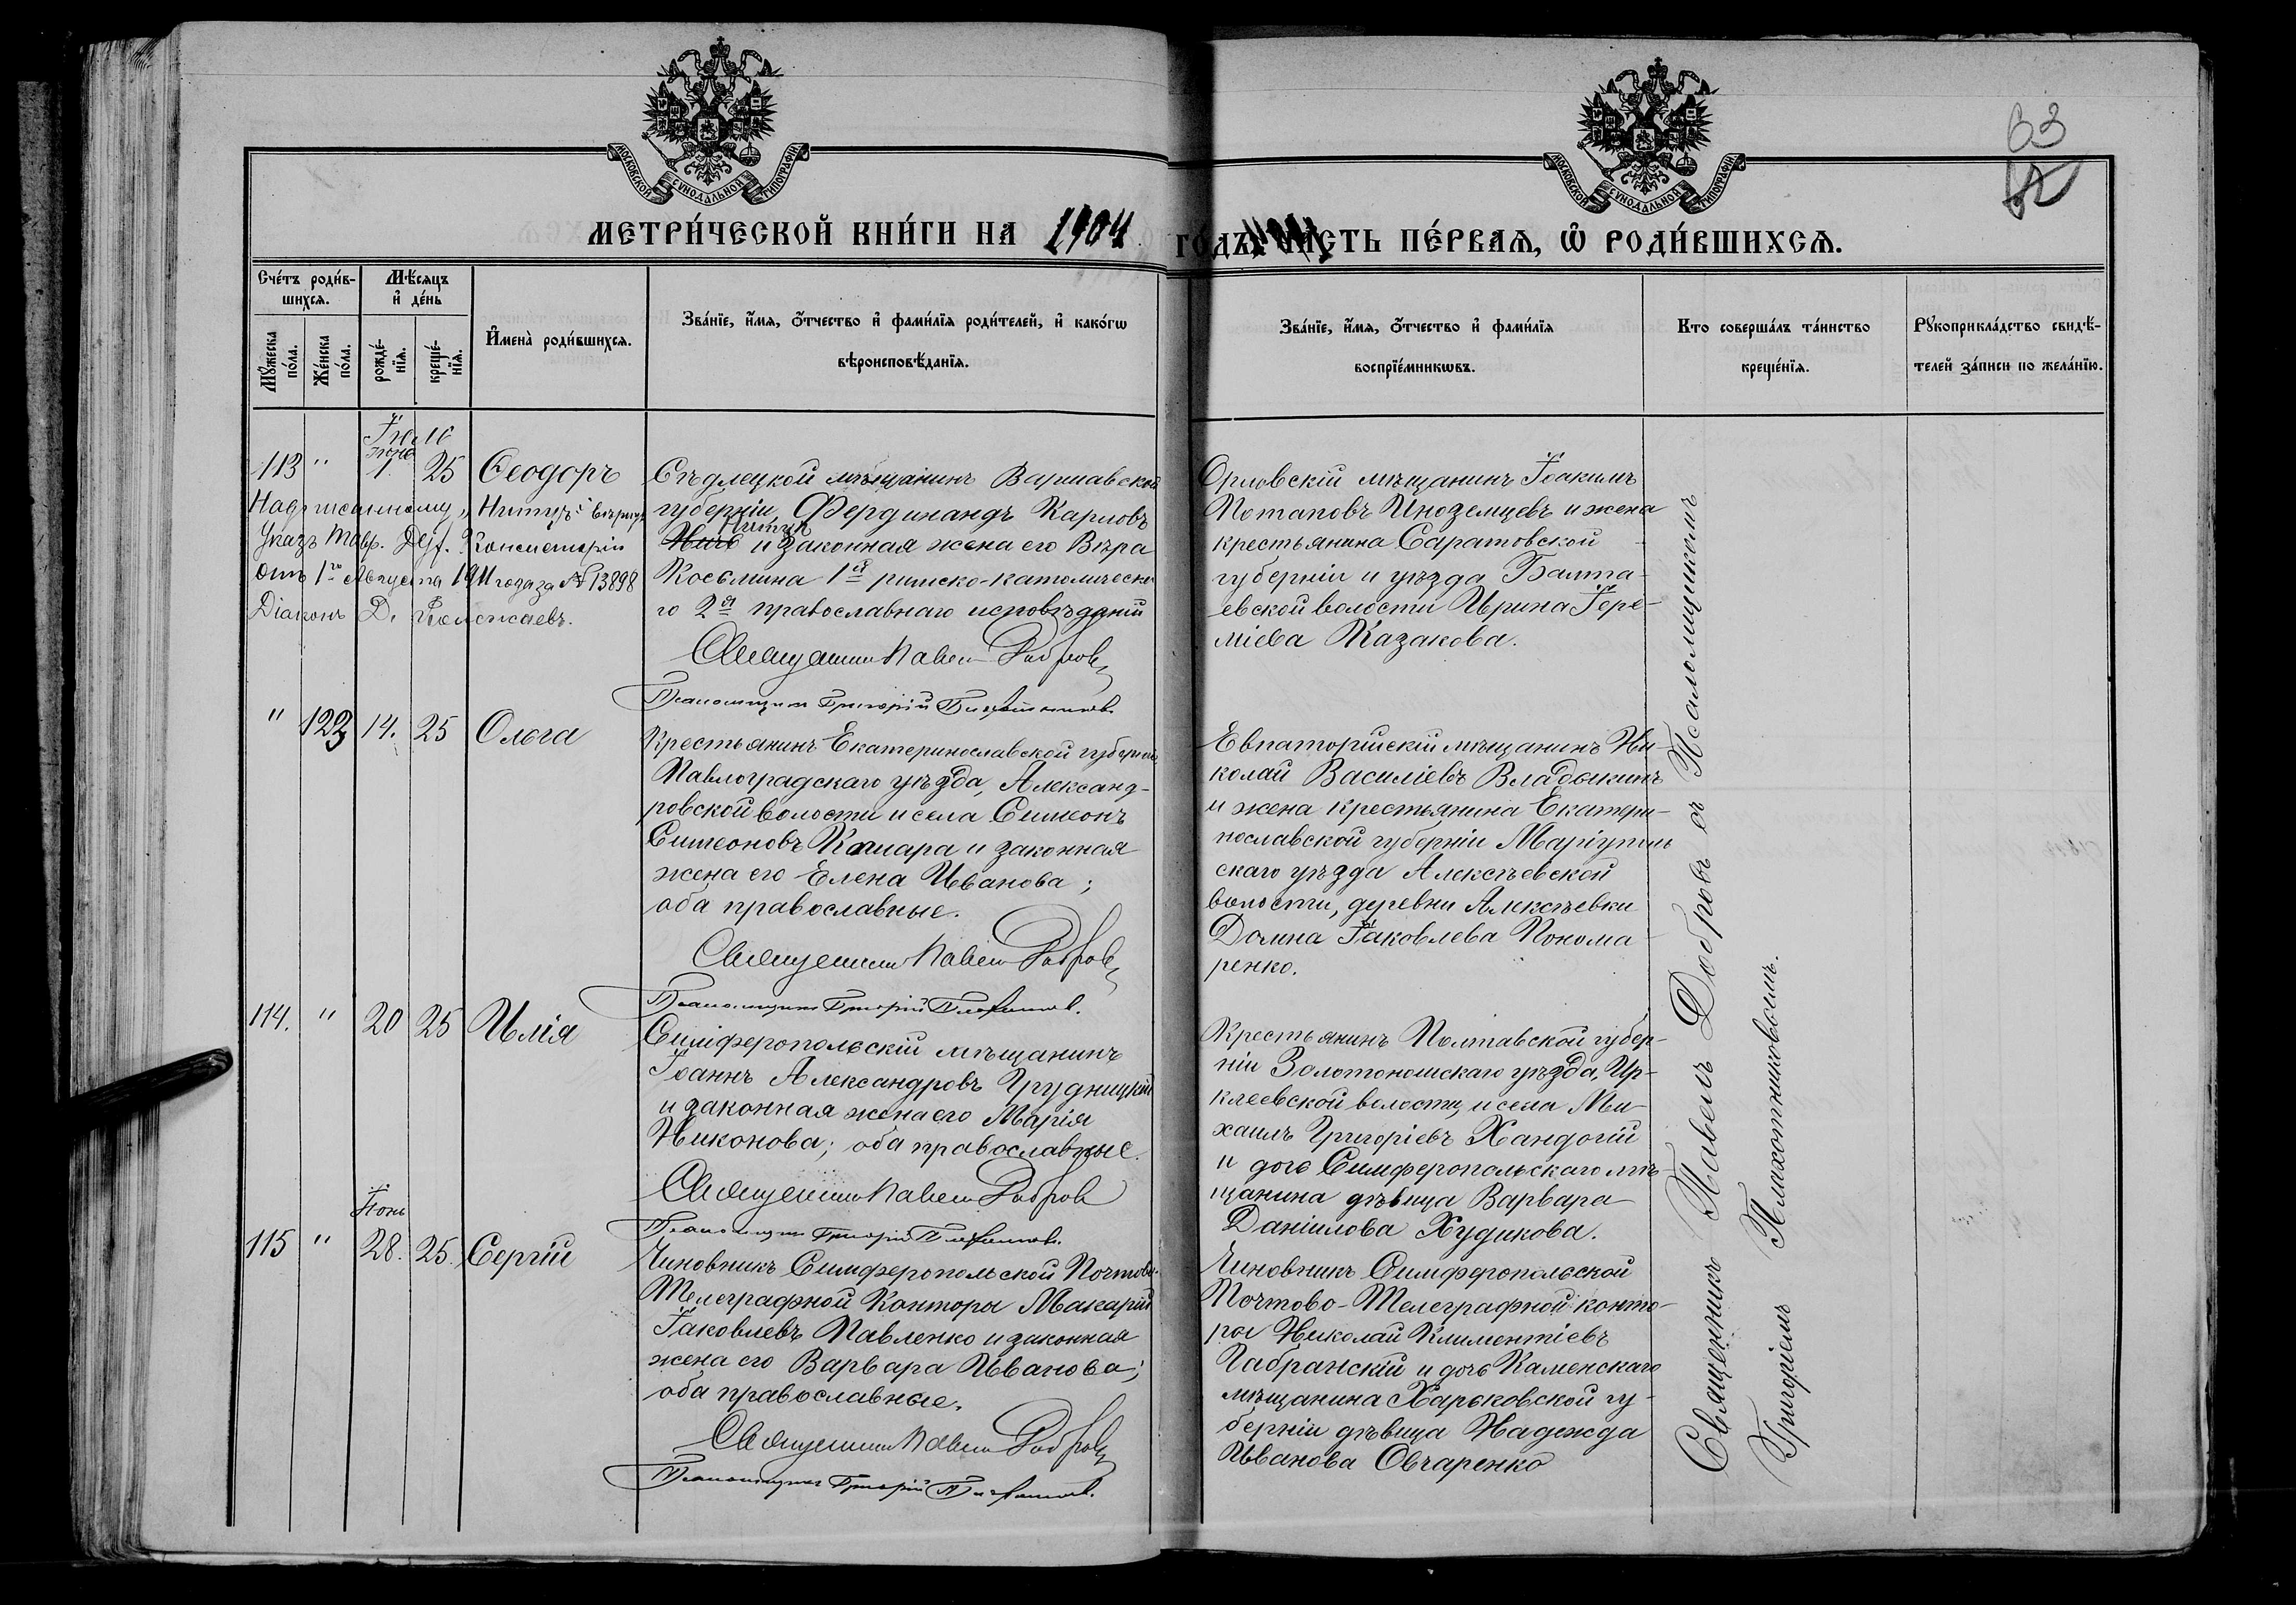 МОСКОВСКОЙ СУНОДАЛЬНОЙ ТИПОГРАФІИ
МОСКОВСКОЙ СУНОДАЛЬНОЙ ТИПОГРАФІИ
63
МЕТРИ́ЧЕСКОЙ КНИ́ГИ НА 1904
ГОДЪ, ЧАСТЬ ПЕ́РВАЯ, Ѡ РОДИ́ВШИХСЯ.
Сче́тъ роди́в-
шихся.
Мꙋжеска
по́ла.
Же́нска
по́ла.
Мѣ́сяцъ
и҆ де́нь
рожде́-
нїя.
креще́-
нїя.
И҆мена̀ роди́вшихся.
Зва́нїе, и҆́мя, ѻ҆́тчество и҆ фами́лїя роди́телей, и҆ како́гѡ
вѣроисповѣ́данїя.
Зва́нїе, и҆́мя, ѻ҆́тчество и҆ фами́лїя
воспрїе́мникѡвъ.
Кто соверша́лъ та́инство
креще́нїя.
Рꙋкоприкла́дство свидѣ́-
телей за́писи по жела́нїю.
113 " 1. 25 Ѳеодоръ
Надписанному „Нитцъ"
Указъ Тавр. Дух. Консисторіи
отъ 1го Августа 1911 года за № 13898
Діаконъ Д.
Сѣдлецкой мѣщанинъ Варшавской
губерніи, Фердинандъ Карловъ
Нитцъ
и законная жена его Вѣра
Косьмина 1ый римско-католическа-
го 2ая православнаго исповѣданій
Священникъ Павелъ Добровъ
Псаломщикъ Григорій Плахотниковъ.
Орловскій мѣщанинъ Іоакимъ
Потаповъ Иноземцевъ и жена
крестьянина Саратовской
губерніи и уѣзда Балта-
евской волости Ирина Іере-
міева Казакова.
" 123 14. 25 Ольга
Крестьянинъ Екатеринославской губерніи
Павлоградскаго уѣзда, Александ-
ровской волости и села Симеонъ
Симеоновъ Кошара и законная
жена его Елена Иванова;
оба православные.
Священникъ Павелъ Добровъ
Псаломщикъ Григорій Плахотниковъ.
Евпаторійскій мѣщанинъ Ни-
колай Василіевъ Владыкинъ
и жена крестьянина Екатери-
нославской губерніи Маріуполь
скаго уѣзда Алексѣевской
волости, деревни Алексѣевки
Домна Іаковлева Понома-
ренко.
114. " 20 25 Илія
Симферопольскій мѣщанинъ
Іоаннъ Александровъ Грудницкій
и законная жена его Марія
Никонова; оба православные.
Священникъ Павелъ Добровъ
Псаломщикъ Григорій Плахотниковъ.
Крестьянинъ Полтавской губер-
ніи Золотоношскаго уѣзда, Ир-
клеевской волости, и села Ми-
хаилъ Григоріевъ Хандогій
и дочь Симферопольскаго мѣ-
щанина дѣвица Варвара
Даніилова Худикова.
115 " 28. 25. Сергій
Чиновникъ Симферопольской Почтово-
Телеграфной Конторы Макарій
Іаковлевъ Павленко и законная
жена его Варвара Иванова;
оба православные.
Священникъ Павелъ Добровъ
Псаломщикъ Григорій Плахотниковъ.
Чиновникъ Симферопольской
Почтово-Телеграфной конто-
ры Николай Климентіевъ
Габранскій и дочь Каменскаго
мѣщанина Харьковской гу-
берніи дѣвица Надежда
Иванова Овчаренко
Священникъ Павелъ Добровъ съ Псаломщикомъ
Григоріемъ Плахотниковымъ.